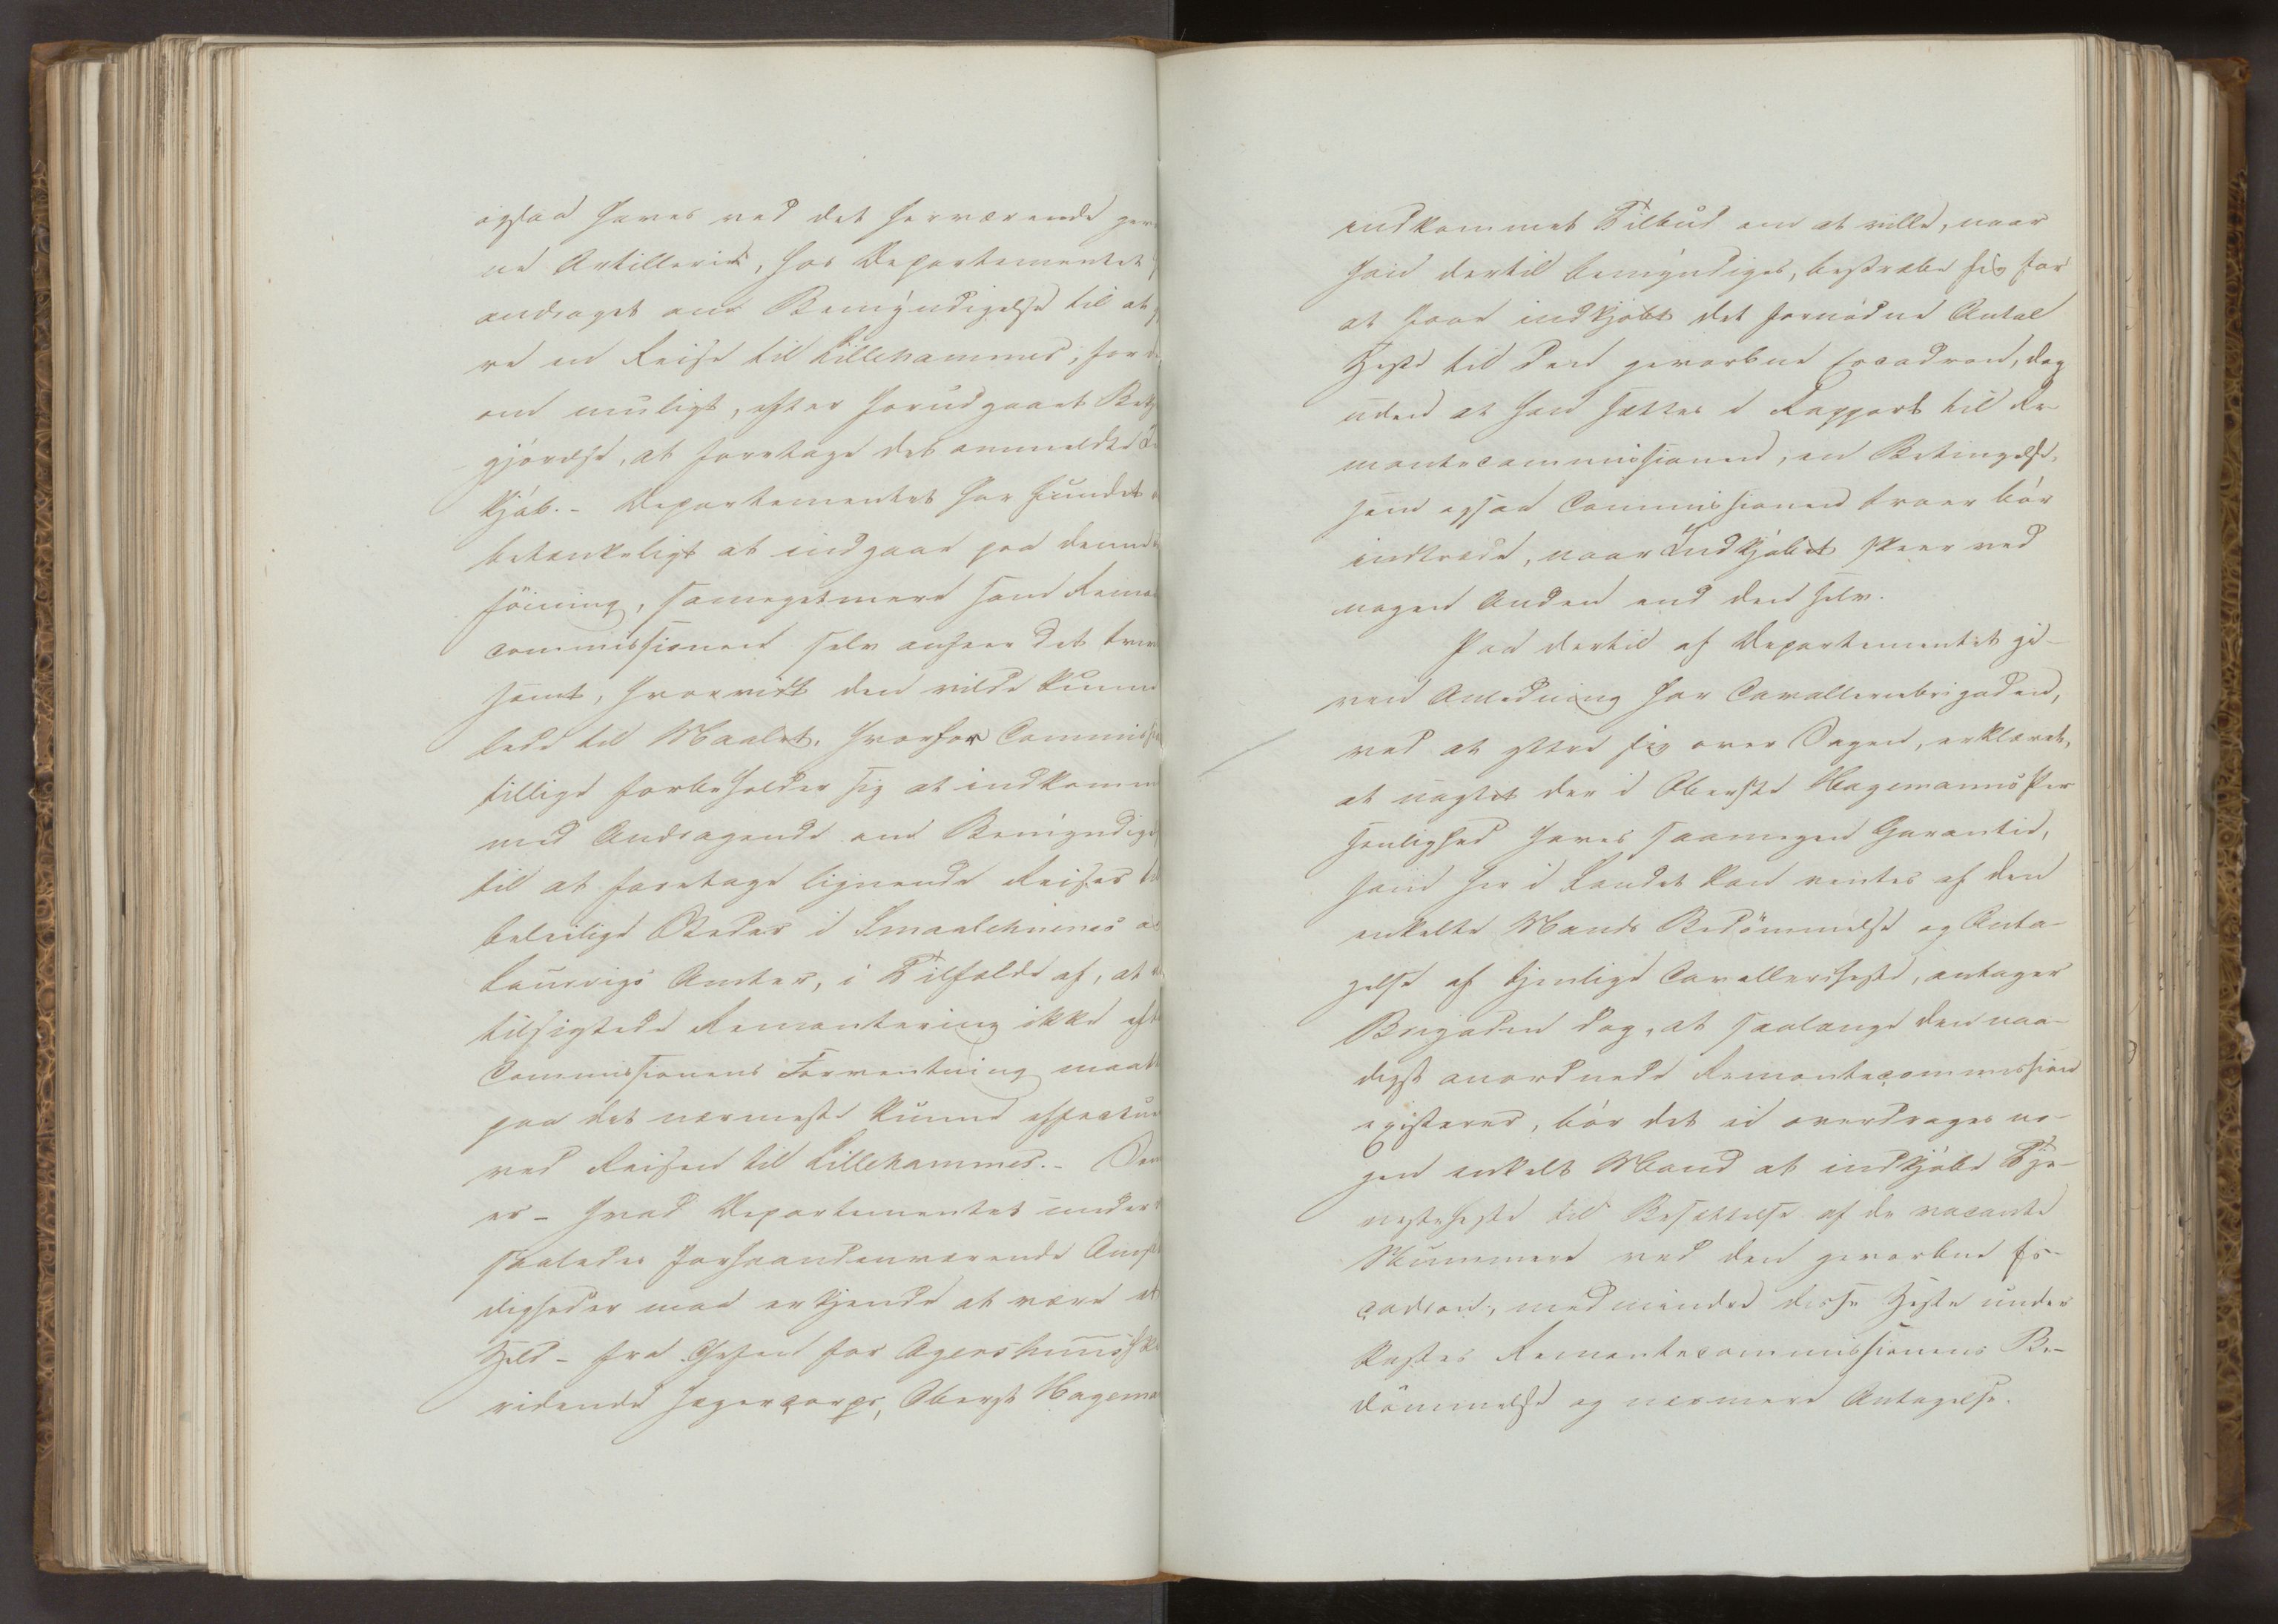 ogsaa haves ved det herværende gev
ne Artillerie, hos Departementet
andraget om Bemyndigelse til at
re en Reise til Lillehammer, for
om muligt, efter forudgaaet
gjørelse, at foretage det anmeldte
kjøb. – Departementet har fundet
betænkeligt at indgaae paa denne
föining, saamegetmere som Remon
commissionen selv anseer det tvivl
somt, hvorvidt den vilde kunne
lede til Maalet, hvorfor Commissi
tillige forbeholder sig at indkomm
med Andragende om Bemyndige
til at foretage lignende Reiser til
beleilige Steder i Smaalehnenes o
Laurvigs Amter, i Tilfælde af, at
tilsigtede Remontering ikke eft
Commissionens Forventning maat
paa det nærmeste kunne effectue
ved Reisen til Lillehammer. – Den
er – hvad Departementet under
saaledes forhaandenværende Omst
digheder maa erkjende at være et
Held – fra Chefen for Agershuusiske
ridende Jægercorps, Oberst Hagema
indkommet Tilbud om at ville, naar
han dertil bemyndiges, bestræbe sig for
at faae indkjøbt det fornødne Antal
Heste til den gevorbne Escadron, dog
uden at han sættes i Rapport til Re-
montecommissionen, en Betingelse,
som ogsaa Commissionen troer bör
indtræde, naar Indkjøbet skeer ved
nogen Anden end den selv.
Paa dertil af Departementet gi-
ven Anledning har Cavalleriebrigaden,
ved at yttre sig over Sagen, erklæret,
at uagtet der i Oberste Hagemanns Per
sonlighed haves saamegen Garantie,
som her i Landet kan ventes af den
enkelte Mands Bedömmelse og Anta-
gelse af tjenlige Cavalleriheste, antager
Brigaden dog, at saalænge den naa-
digst anordnede Remontecommission
existerer, bör det ei overdrages no-
gen enkelt Mand at indkjøbe Tje-
nesteheste til Besættelse af de vacante
Nummere ved den gevorbne Es-
cadron, medmindre disse Heste under
kastes Remontecommissionens Be-
dömmelse og nærmere Antagelse.